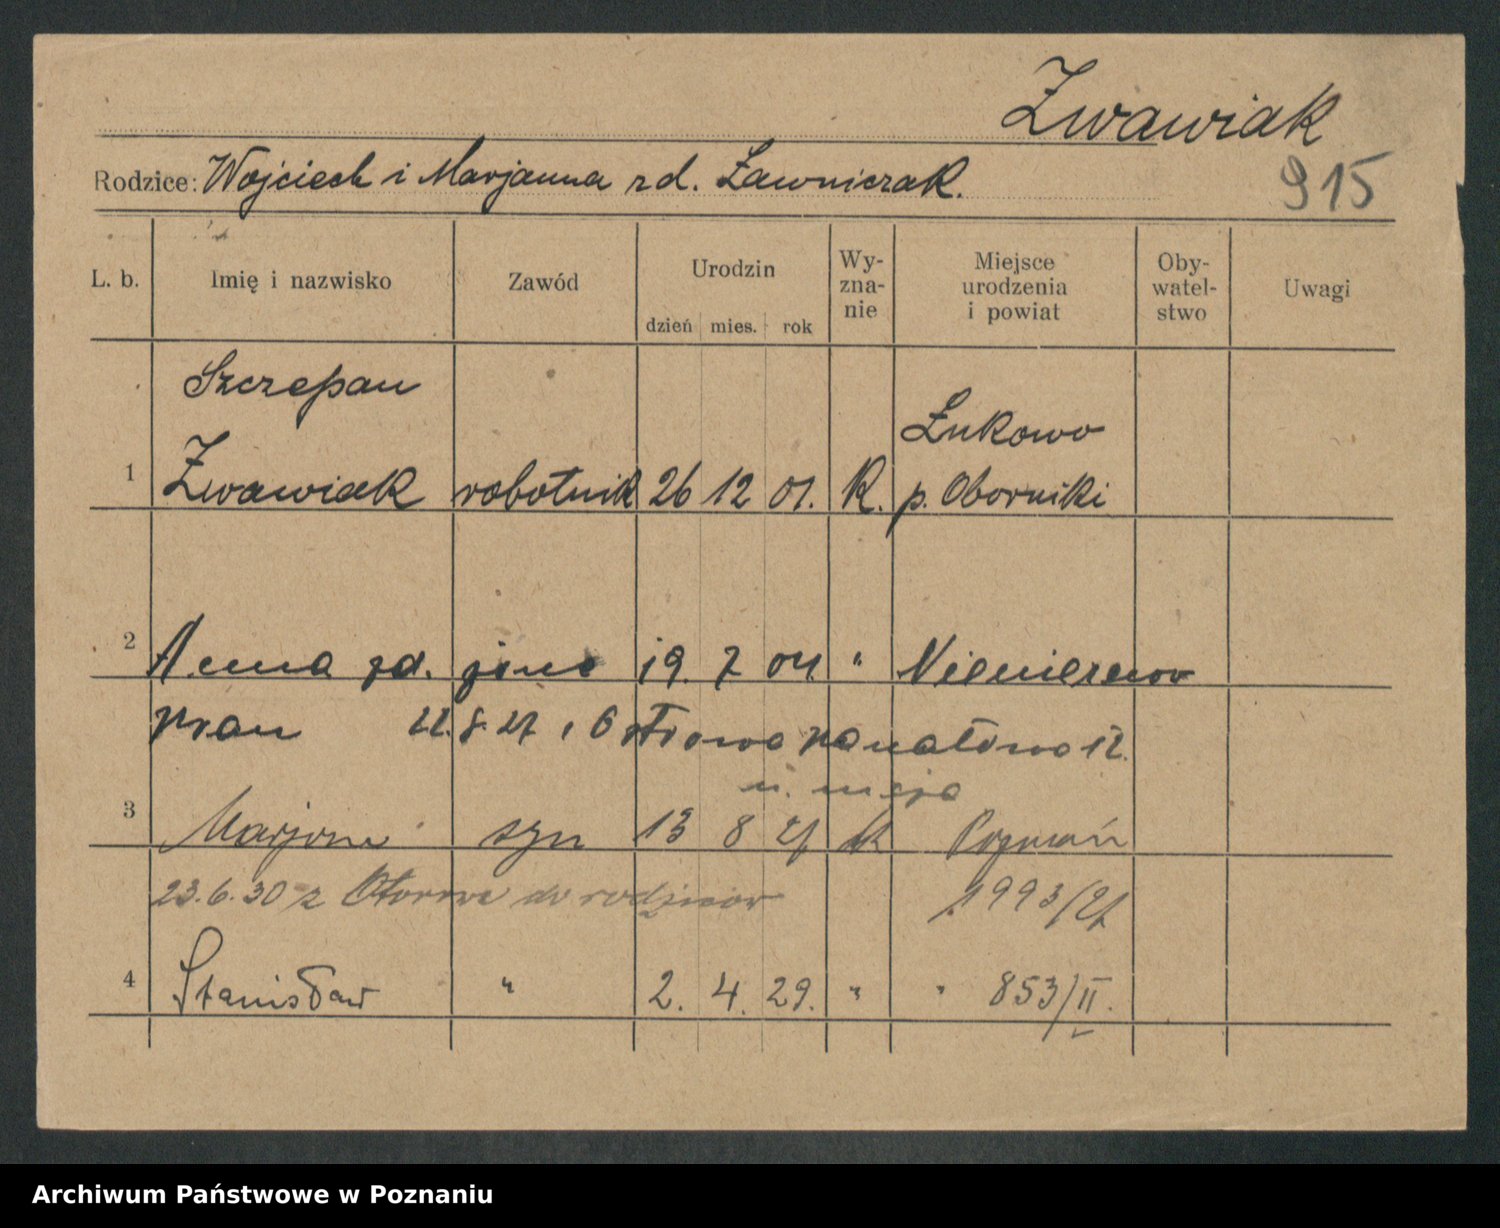 Zwawiak
Rodzice: Wojciech i Marjanna rd. Ławniczak.
915
L. b. Imię i nazwisko Zawód Urodzin dzień mies. rok Wy-zna-nie Miejsce urodzenia i powiat Oby-watel-stwo Uwagi
Szczepan Łukowo
1 Zwawiak robotnik 26 12 01. K. p. Oborniki
2 Anna żona 19. 7 04. "
22. 8. 27
3 Marjan syn 13 8 27 k Poznań
23.6.30 z Otorowa do rodziców 1993/27
4 Stanisław " 2. 4. 29. " " 853/II.
Archiwum Państwowe w Poznaniu